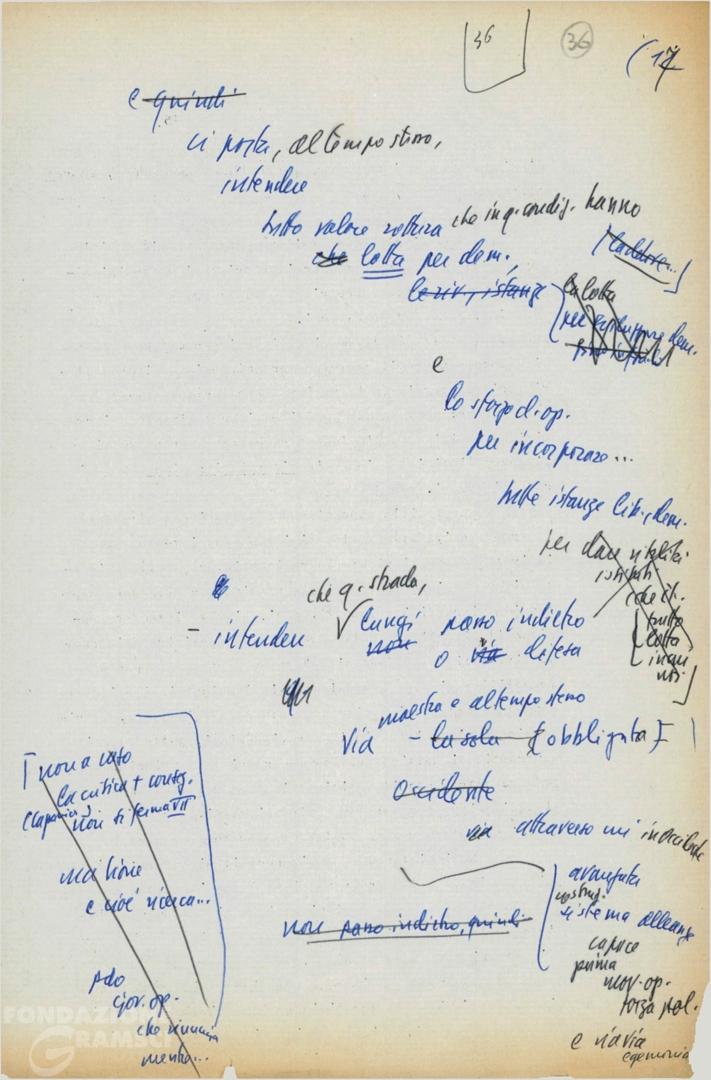 36
36
(17
e quindi
ci porta, al tempo stesso,
intendere
tutto valore rottura che in q. condiz. hanno
che lotta per dem.,
le riv., istanze
la lotta
per sviluppo dem.
e
lo sforzo cl. op.
per incorporare...
tutte istanze lib., dem.
per dare
istituti
che cl.
tutto
lotta
che q. strada,
- intendere lungi passo indietro
non o via difesa
maestra e al tempo stesso
via - la sola [obbligata]
Occidente
via attraverso cui in occidente
avanzata
costruz.
sistema alleanze
capace
prima
mov. op.
forza pol.
e via via
egemonia
non passo indietro, quindi
[non a caso
la critica + conseg.
non si ferma VII
ma Lione
e cioè ricerca...
pdo
giov. op.
che rinuncia
mentre...
FONDAZIONE
GRAMSCI